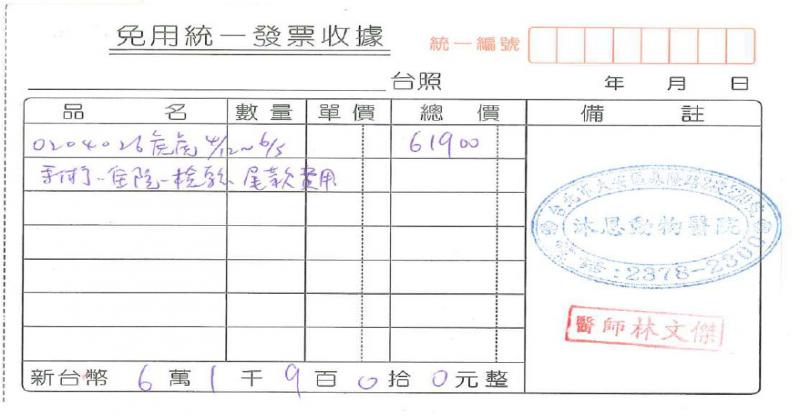 免用統一發票收據
統一編號
台照 年 月 日
品名 數量 單價 總價 備註
0204026 虎虎 4/12~6/5 61900
住院-檢驗、尾款費用
沐恩動物醫院
電話:2378-2300
醫師林文傑
新台幣 6萬1千9百0拾0元整